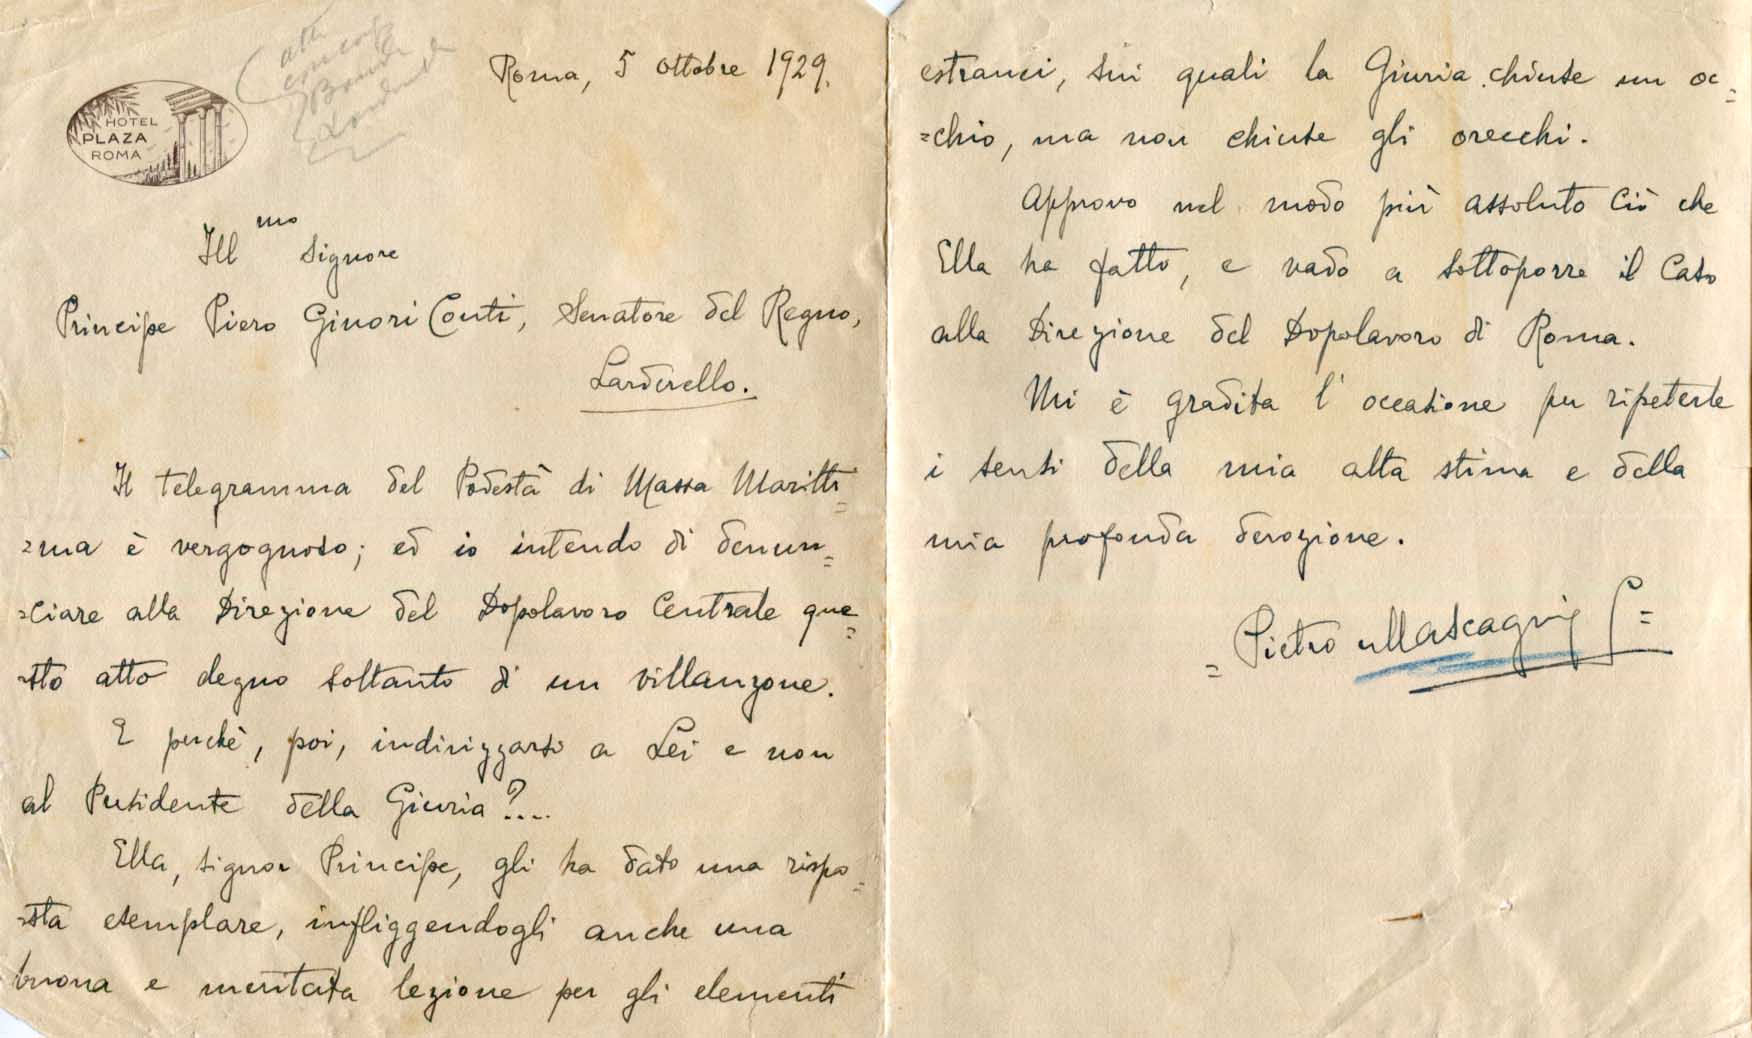 Roma, 5 ottobre 1929.
HOTEL
PLAZA
ROMA
Ill mo Signore
Principe Piero Ginori Conti, Senatore del Regno,
Larderello.
Il telegramma del Podestà di Massa Maritti=
=ma è vergognoso; ed io intendo di denun=
=ciare alla Direzione del Dopolavoro Centrale que=
=sto atto degno soltanto di un villanzone.
E perchè, poi, indirizzarsi a Lei e non
al Presidente della Giuria?....
Ella, signor Principe, gli ha dato una rispo=
=sta esemplare, infliggendogli anche una
buona e meritata lezione per gli elementi
estranei, sui quali la Giuria chiuse un oc=
=chio, ma non chiuse gli orecchi.
Approvo nel modo più assoluto ciò che
Ella ha fatto, e vado a sottoporre il caso
alla Direzione del Dopolavoro di Roma.
Mi è gradita l'occasione per ripeterle
i sensi della mia alta stima e della
mia profonda devozione.
= Pietro Mascagni =